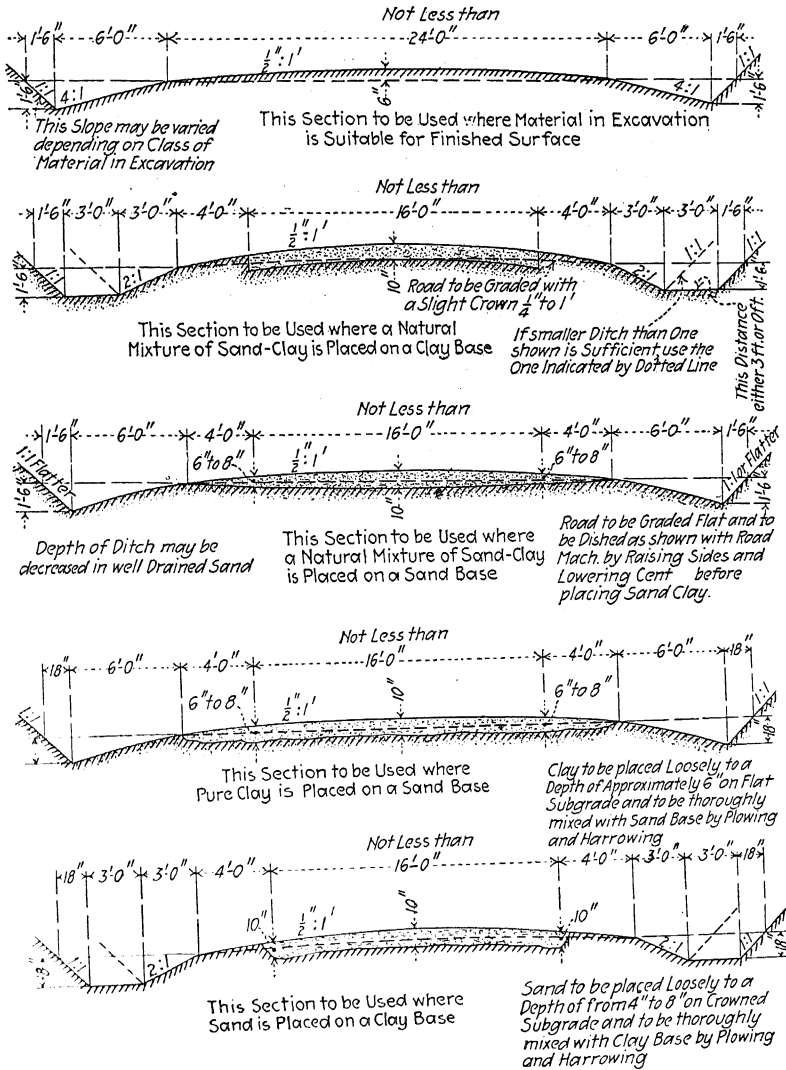 Not Less than
1'-6" 6'-0" 24'-0" 6'-0" 1'-6"
1/2":1'
1:1 4:1 6" 4:1 1:1
1'-6" 1'-6"
This Slope may be varied
depending on Class of
Material in Excavation
This Section to be Used where Material in Excavation
is Suitable for Finished Surface
Not Less than
1'-6" 3'-0" 3'-0" 4'-0" 16'-0" 4'-0" 3'-0" 3'-0" 1'-6"
1/2":1'
1:1 2:1 10" 2:1 1:1 1:1
1'-6" 1'-6"
Road to be Graded with
a Slight Crown 1/4" to 1'
This Section to be Used where a Natural
Mixture of Sand-Clay is Placed on a Clay Base
If smaller Ditch than One
shown is Sufficient, use the
One Indicated by Dotted Line
This Distance
either 3ft. or 0ft.
Not Less than
1'-6" 6'-0" 4'-0" 16'-0" 4'-0" 6'-0" 1'-6"
6" to 8" 1/2":1' 6" to 8"
1:1 Flatter 10" 1:1 or Flatter
1'-6" 1'-6"
Depth of Ditch may be
decreased in well Drained Sand
This Section to be Used where
a Natural Mixture of Sand-Clay
is Placed on a Sand Base
Road to be Graded Flat and to
be Dished as shown with Road
Mach. by Raising Sides and
Lowering Cent before
placing Sand Clay.
Not Less than
18" 6'-0" 4'-0" 16'-0" 4'-0" 6'-0" 18"
6" to 8" 1/2":1' 10" 6" to 8"
1:1 1:1
18"
This Section to be Used where
Pure Clay is Placed on a Sand Base
Clay to be placed Loosely to a
Depth of Approximately 6" on Flat
Subgrade and to be thoroughly
mixed with Sand Base by Plowing
and Harrowing
Not Less than
18" 3'-0" 3'-0" 4'-0" 16'-0" 4'-0" 3'-0" 3'-0" 18"
10" 1/2":1' 10" 10"
1:1 2:1 2:1 1:1
18" 18"
This Section to be Used where
Sand is Placed on a Clay Base
Sand to be placed Loosely to a
Depth of from 4" to 8" on Crowned
Subgrade and to be thoroughly
mixed with Clay Base by Plowing
and Harrowing